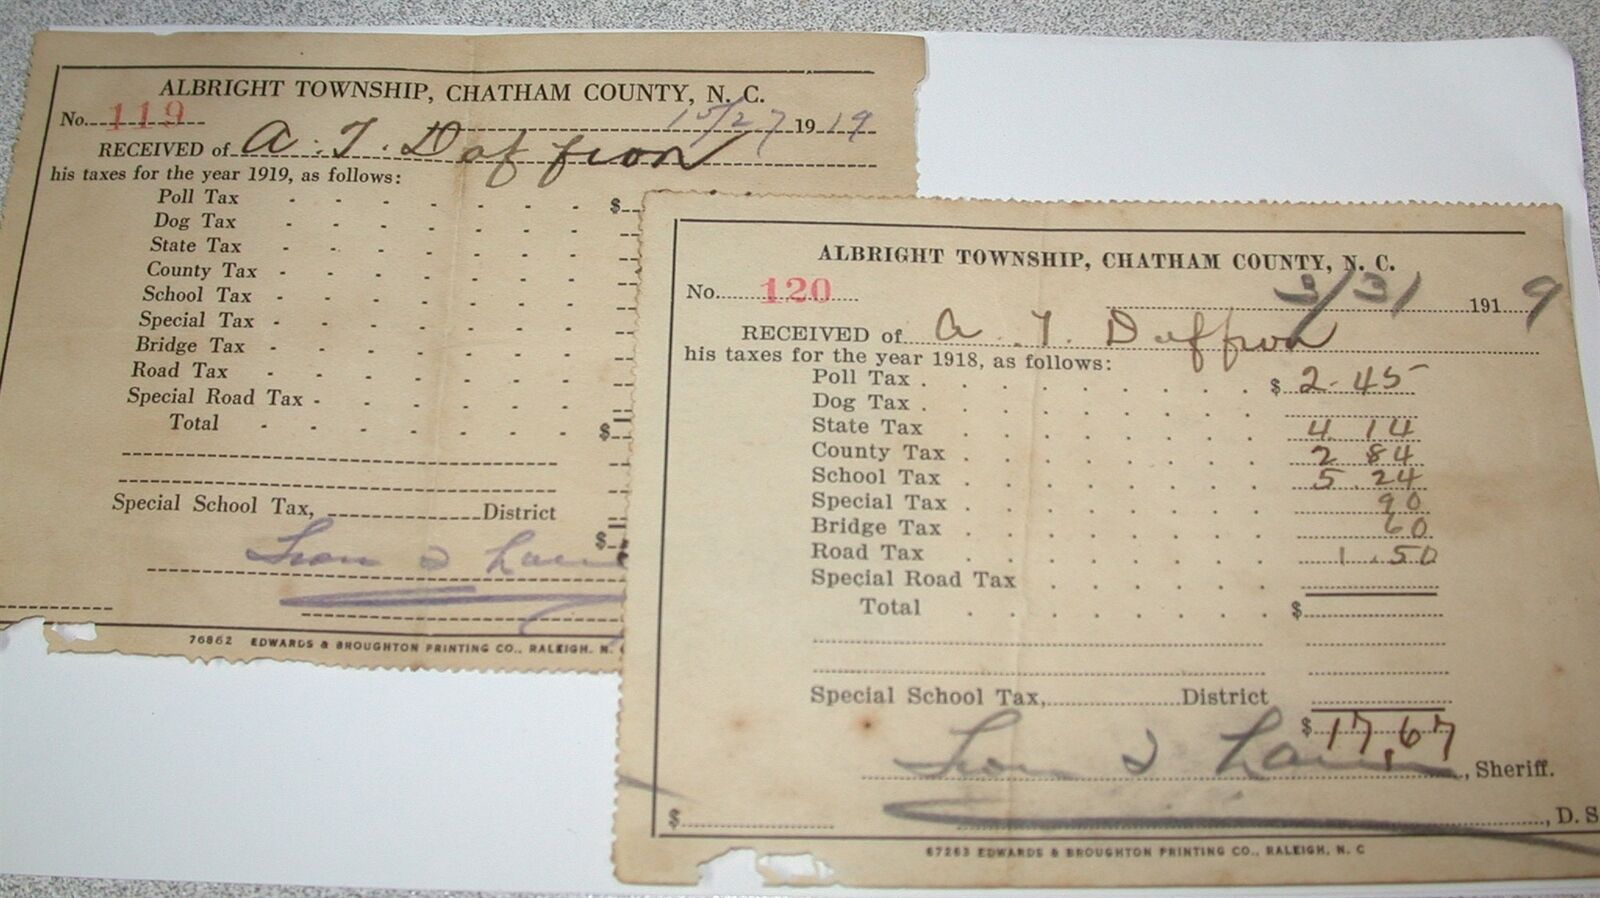 ALBRIGHT TOWNSHIP, CHATHAM COUNTY, N. C.
No. 119
19 19
RECEIVED of A. T. Daffron
his taxes for the year 1919, as follows:
Poll Tax $
Dog Tax
State Tax
County Tax
School Tax
Special Tax
Bridge Tax
Road Tax
Special Road Tax
Total $
Special School Tax, District
$
76862 EDWARDS & BROUGHTON PRINTING CO., RALEIGH, N.
ALBRIGHT TOWNSHIP, CHATHAM COUNTY, N. C.
No. 120
3/31 1919
RECEIVED of A. T. Daffron
his taxes for the year 1918, as follows:
Poll Tax $ 2.45
Dog Tax
State Tax 4 14
County Tax 2 84
School Tax 5.24
Special Tax 90
Bridge Tax 60
Road Tax 1.50
Special Road Tax
Total $
Special School Tax, District
$ 17.67
Leon T Lane, Sheriff.
$ , D. S
67263 EDWARDS & BROUGHTON PRINTING CO., RALEIGH, N. C